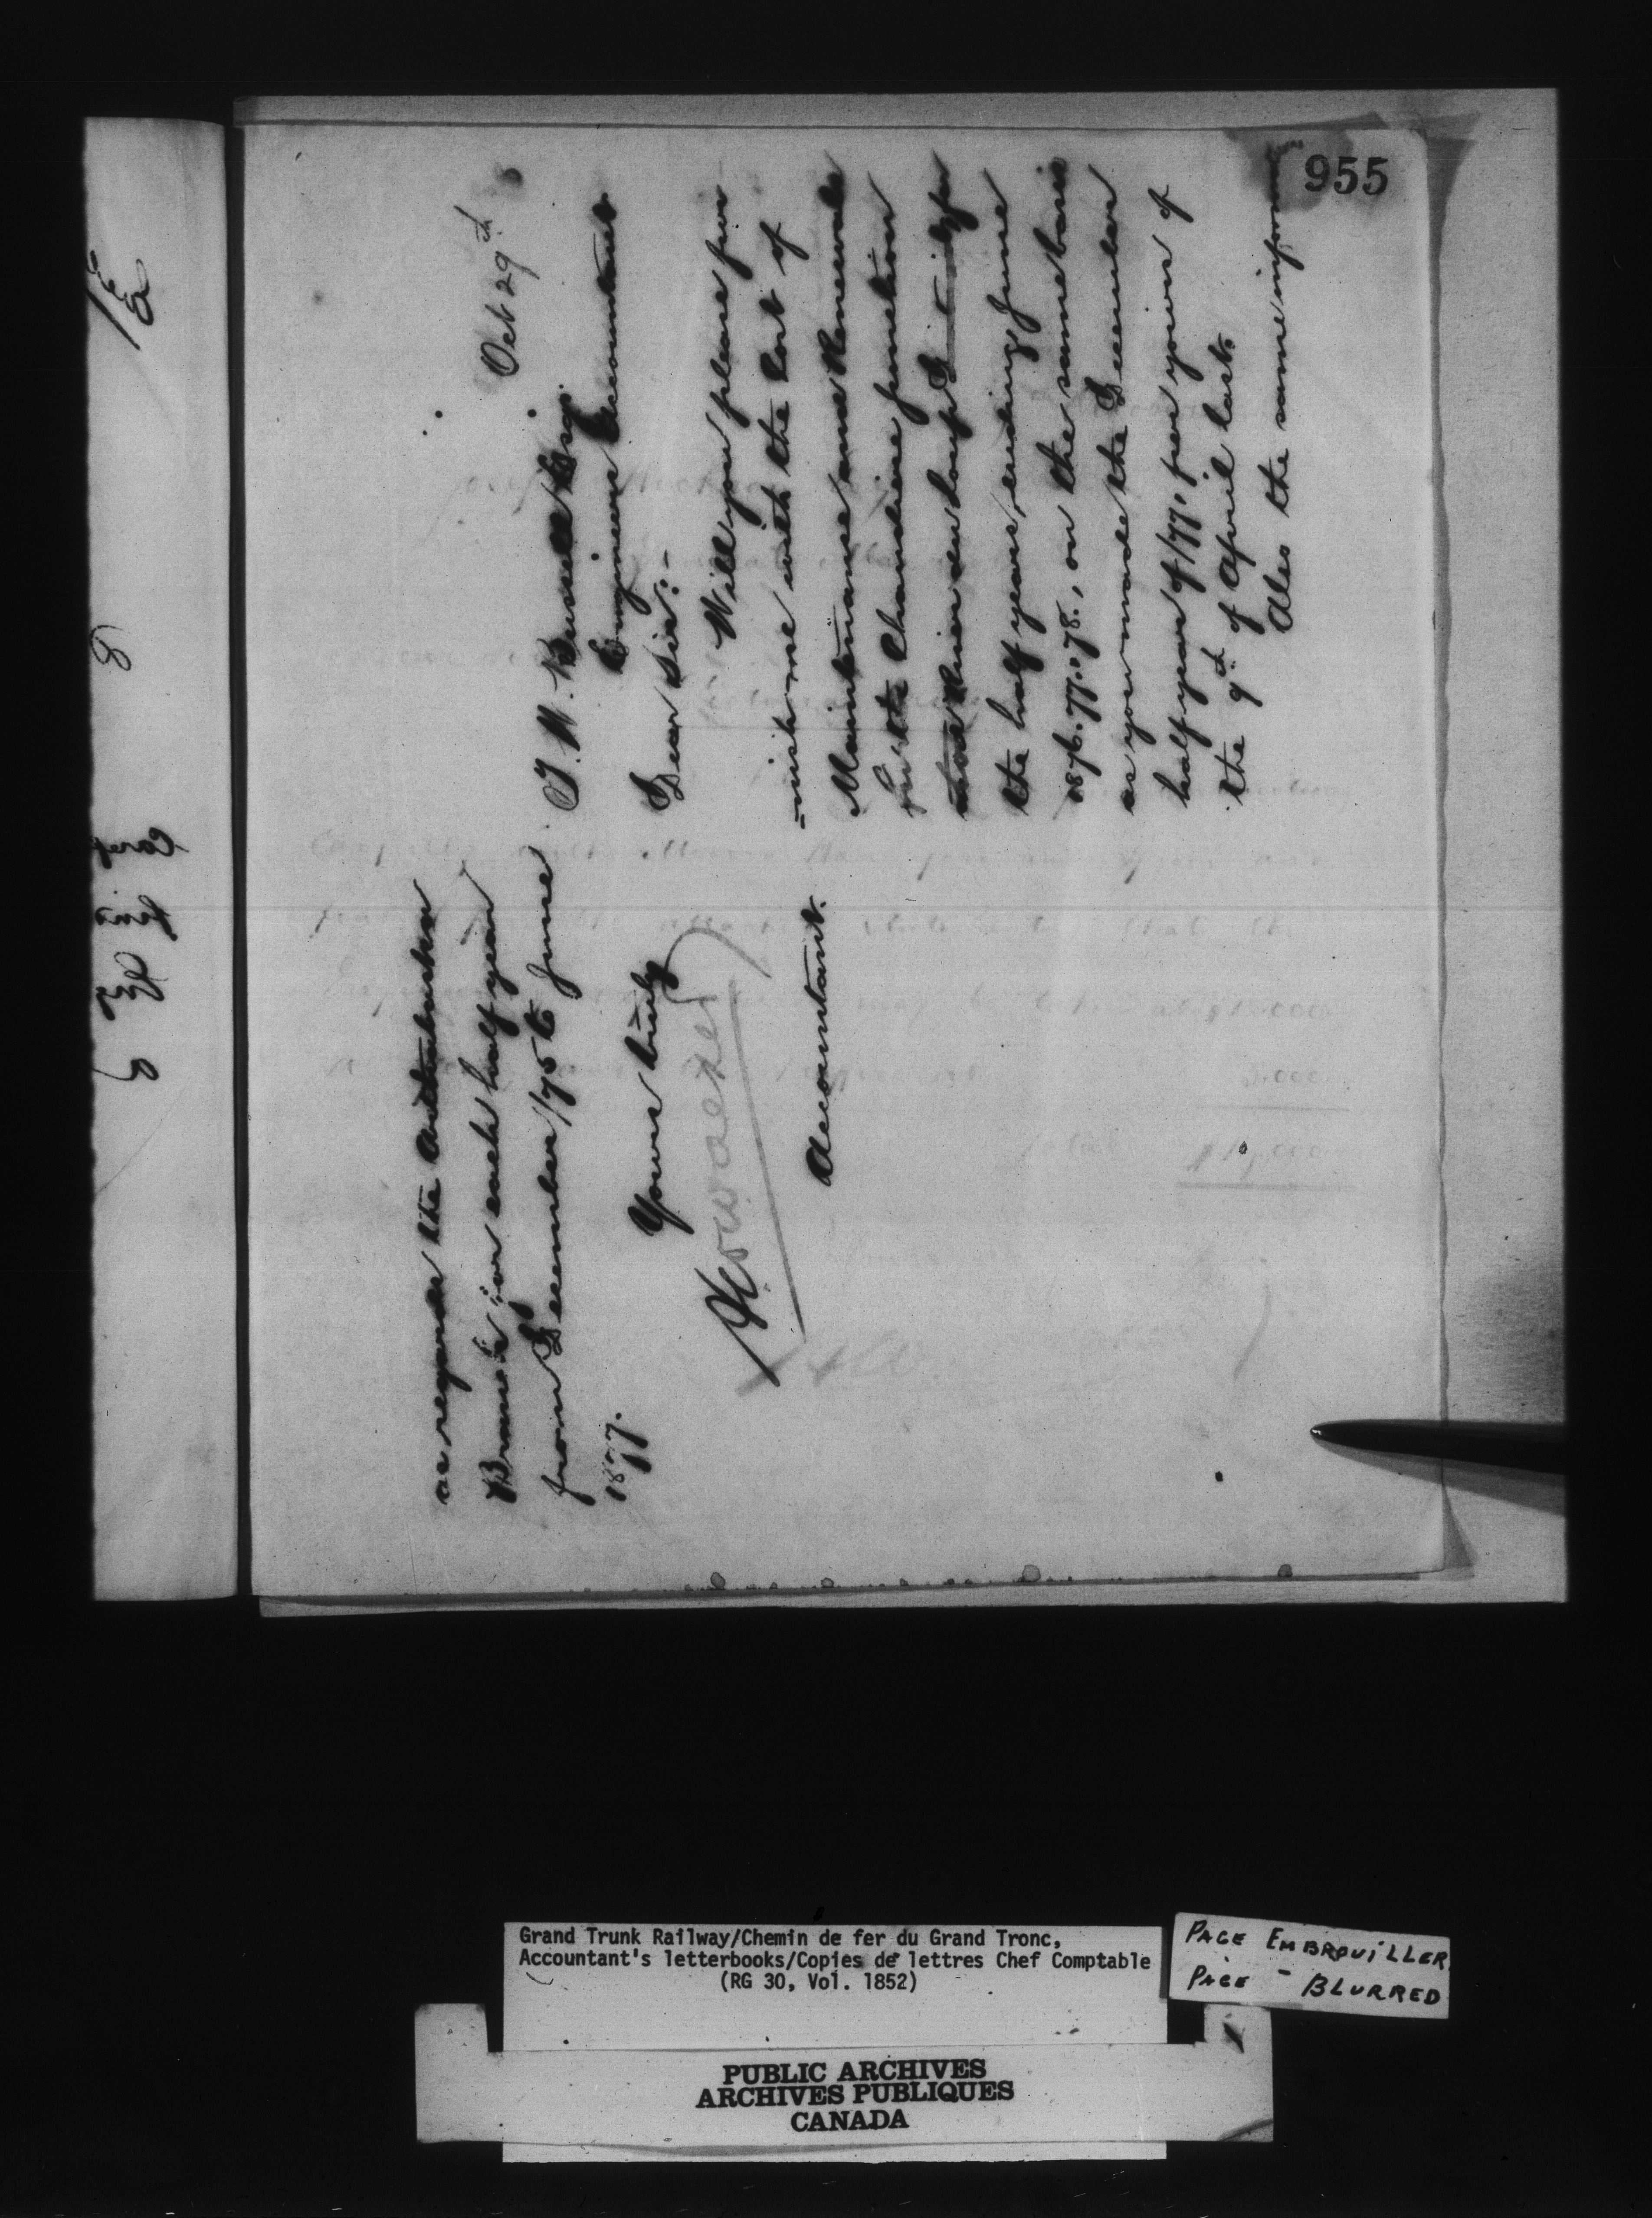 955
Oct 29th 8
T. W. Russell Esq.
Engineers Accountant
Dear Sir:-
Will you please fur
-nish me with the Cost of
Maintenance and Renewals
for the Chaudiere Junction
and River du Loup District, for
the half years, ending June
1876. 77. 78., on the same basis
as you made the December
half year of /77, per yours of
the 9th of April last.
Also the same information
as regards the Arthabaska
Branch for each half year
from December /75 to June
1877.
Yours truly
Accountant.
Grand Trunk Railway/Chemin de fer du Grand Tronc,
Accountant's letterbooks/Copies de lettres Chef Comptable
(RG 30, Vol. 1852)
PAGE EMBROUILLER
PAGE - BLURRED
PUBLIC ARCHIVES
ARCHIVES PUBLIQUES
CANADA